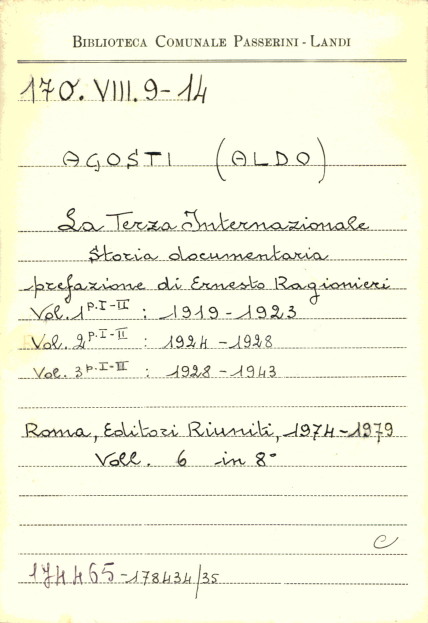 BIBLIOTECA COMUNALE PASSERINI - LANDI
170. VIII. 9-14
AGOSTI (ALDO)
La Terza Internazionale
Storia documentaria
prefazione di Ernesto Ragionieri
Vol. 1 p. I-II : 1919-1923
Vol. 2 p. I-II : 1924-1928
Vol. 3 p. I-III : 1928-1943
Roma, Editori Riuniti, 1974-1979
Voll. 6 in 8°
C
174465-178434/35